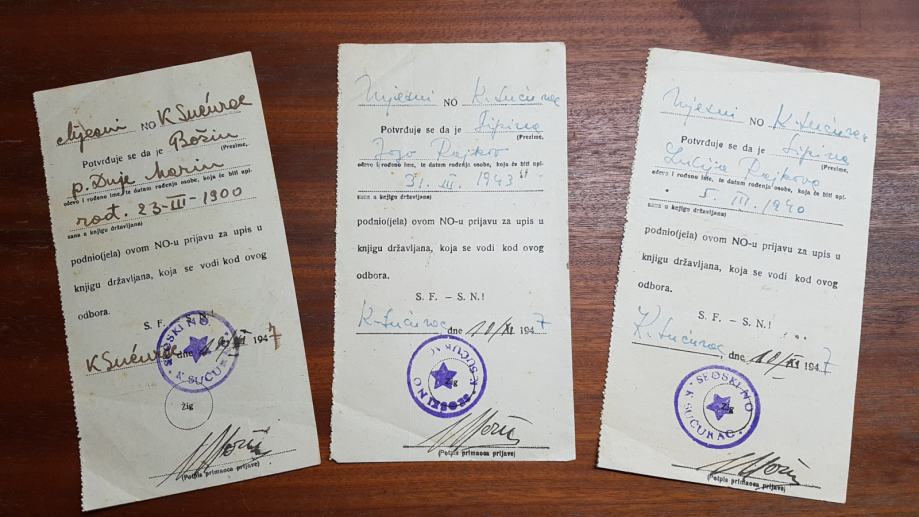 Mjesni NO K Sućurac
Potvrđuje se da je Božin
(Prezime,
p. Duje Marin
očevo i rođeno ime, te datum rođenja osobe, koja će biti upi-
rođ. 23-III-1900
sana u knjigu državljana)
podnio(jela) ovom NO-u prijavu za upis u
knjigu državljana, koja se vodi kod ovog
odbora.
S. F. – S. N.!
K Sućurac dne 1947
SEOSKI NO
K SUĆURAC
žig
(Potpis primaoca prijave)
Mjesni NO K. Sućurac
Potvrđuje se da je
(Prezime,
Jozo Rajkov
očevo i rođeno ime, te datum rođenja osobe, koja će biti upi-
31. III. 1943
sana u knjigu državljana)
podnio(jela) ovom NO-u prijavu za upis u
knjigu državljana, koja se vodi kod ovog
odbora.
S. F. – S. N.!
K. Sućurac dne 10/XI 1947
SEOSKI NO
K SUĆURAC
žig
(Potpis primaoca prijave)
Mjesni NO K. Sućurac
Potvrđuje se da je
(Prezime,
Lucija Rajkova
očevo i rođeno ime, te datum rođenja osobe, koja će biti upi-
5. III. 1940
sana u knjigu državljana)
podnio(jela) ovom NO-u prijavu za upis u
knjigu državljana, koja se vodi kod ovog
odbora.
S. F. – S. N.!
K. Sućurac, dne 10/XI 1947
SEOSKI NO
K SUĆURAC
žig
(Potpis primaoca prijave)